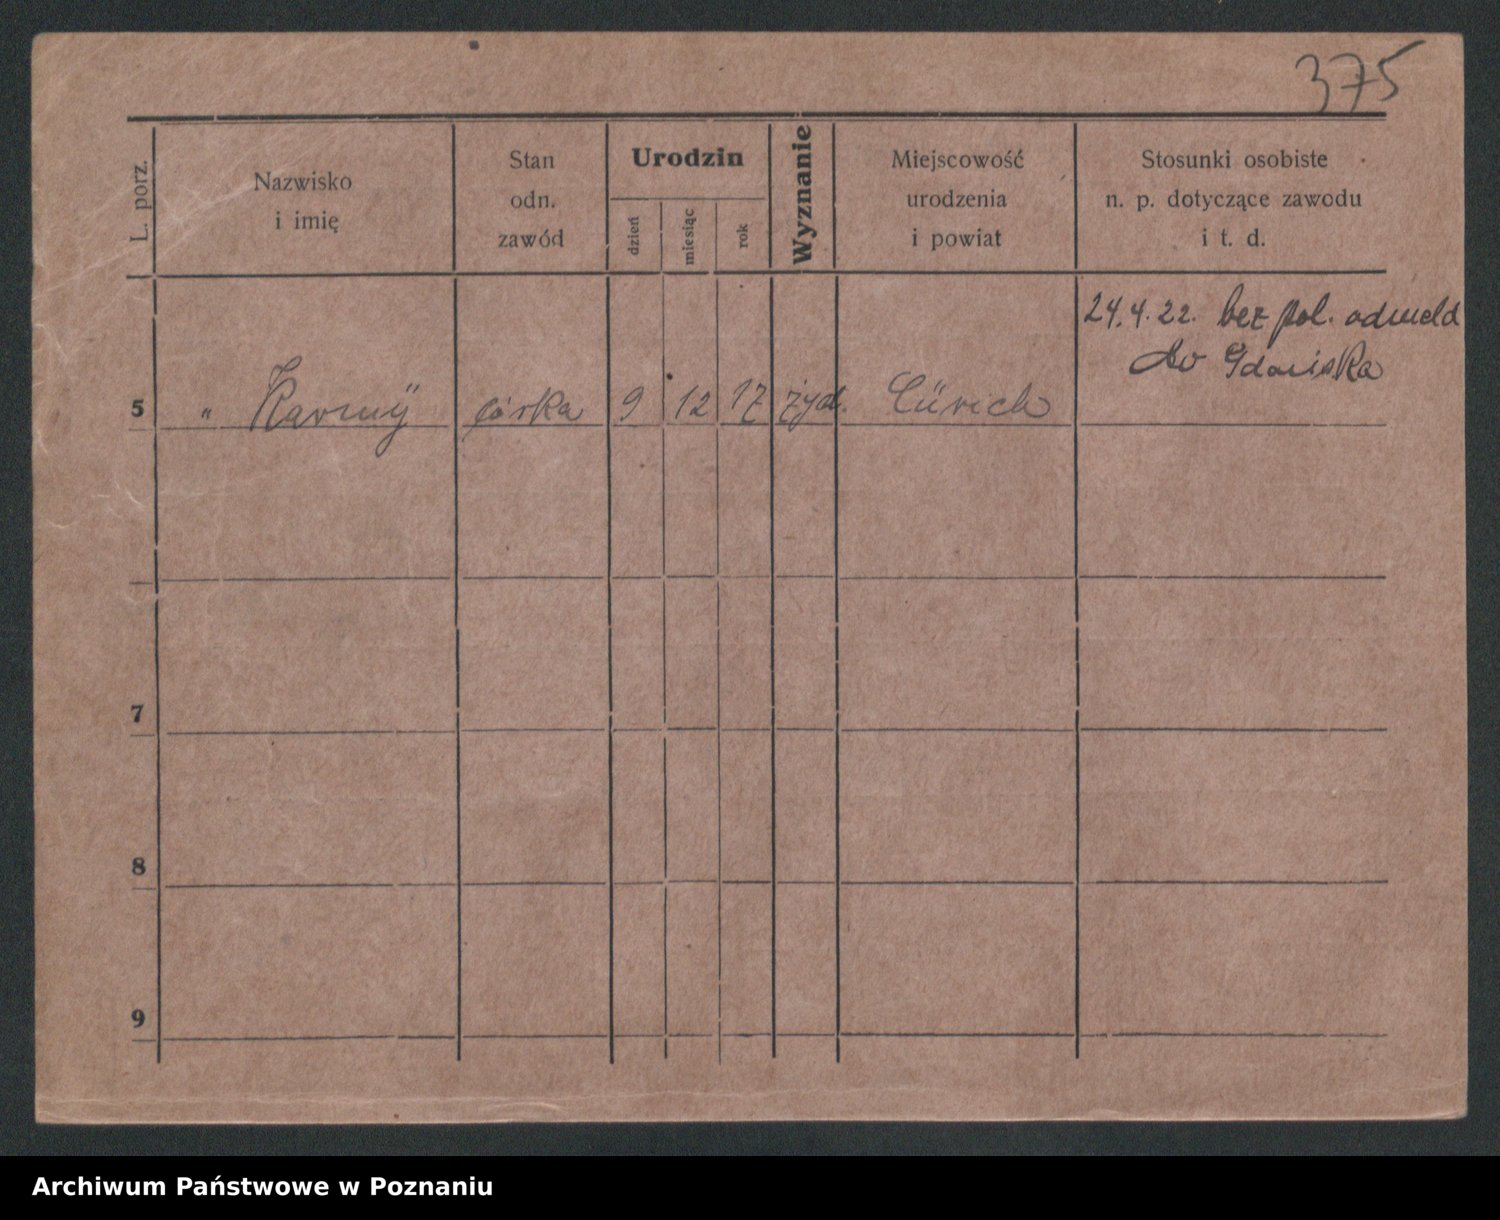 375
L. porz.
Nazwisko
i imię
Stan
odn.
zawód
Urodzin
dzień
miesiąc
rok
Wyznanie
Miejscowość
urodzenia
i powiat
Stosunki osobiste
n. p. dotyczące zawodu
i t. d.
24.4.22. bez pol. odmeld
do Gdańska
5 " córka 9 12 17 żyd. Cürich
7
8
9
Archiwum Państwowe w Poznaniu